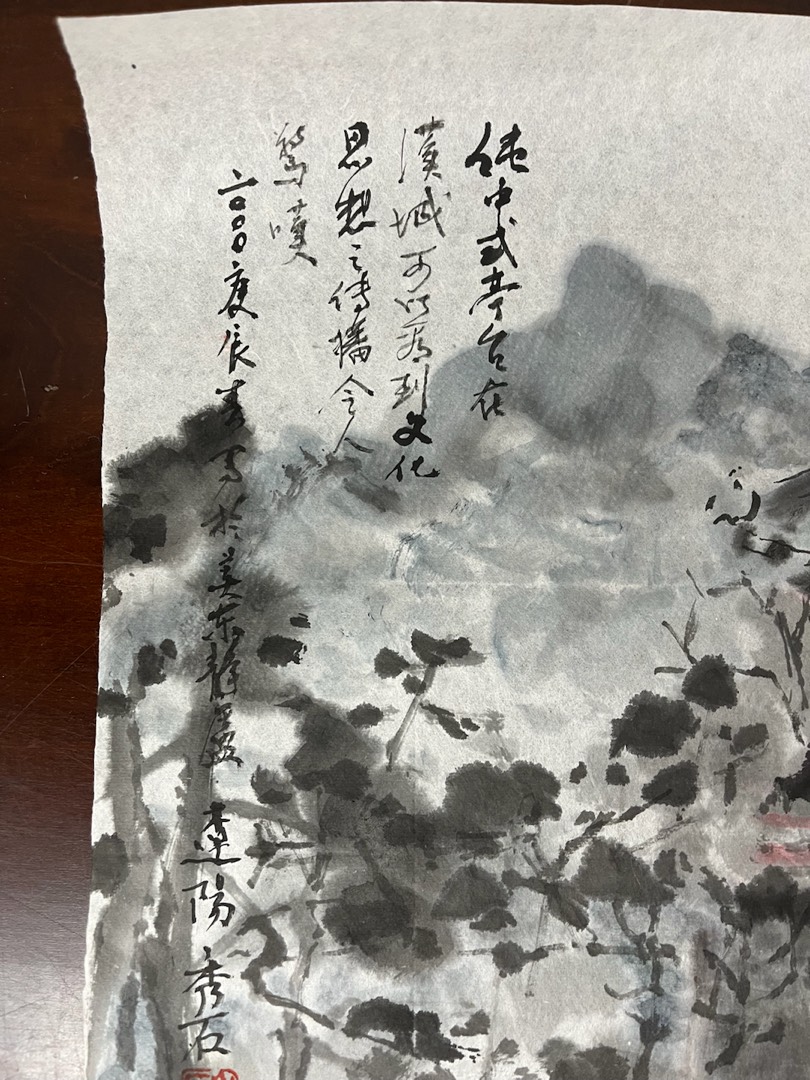 纯中式亭台在
漢城可以看到文化
思想之傳播令人
驚嘆
二〇〇〇庚辰春写於美东静遠
遼陽秀石